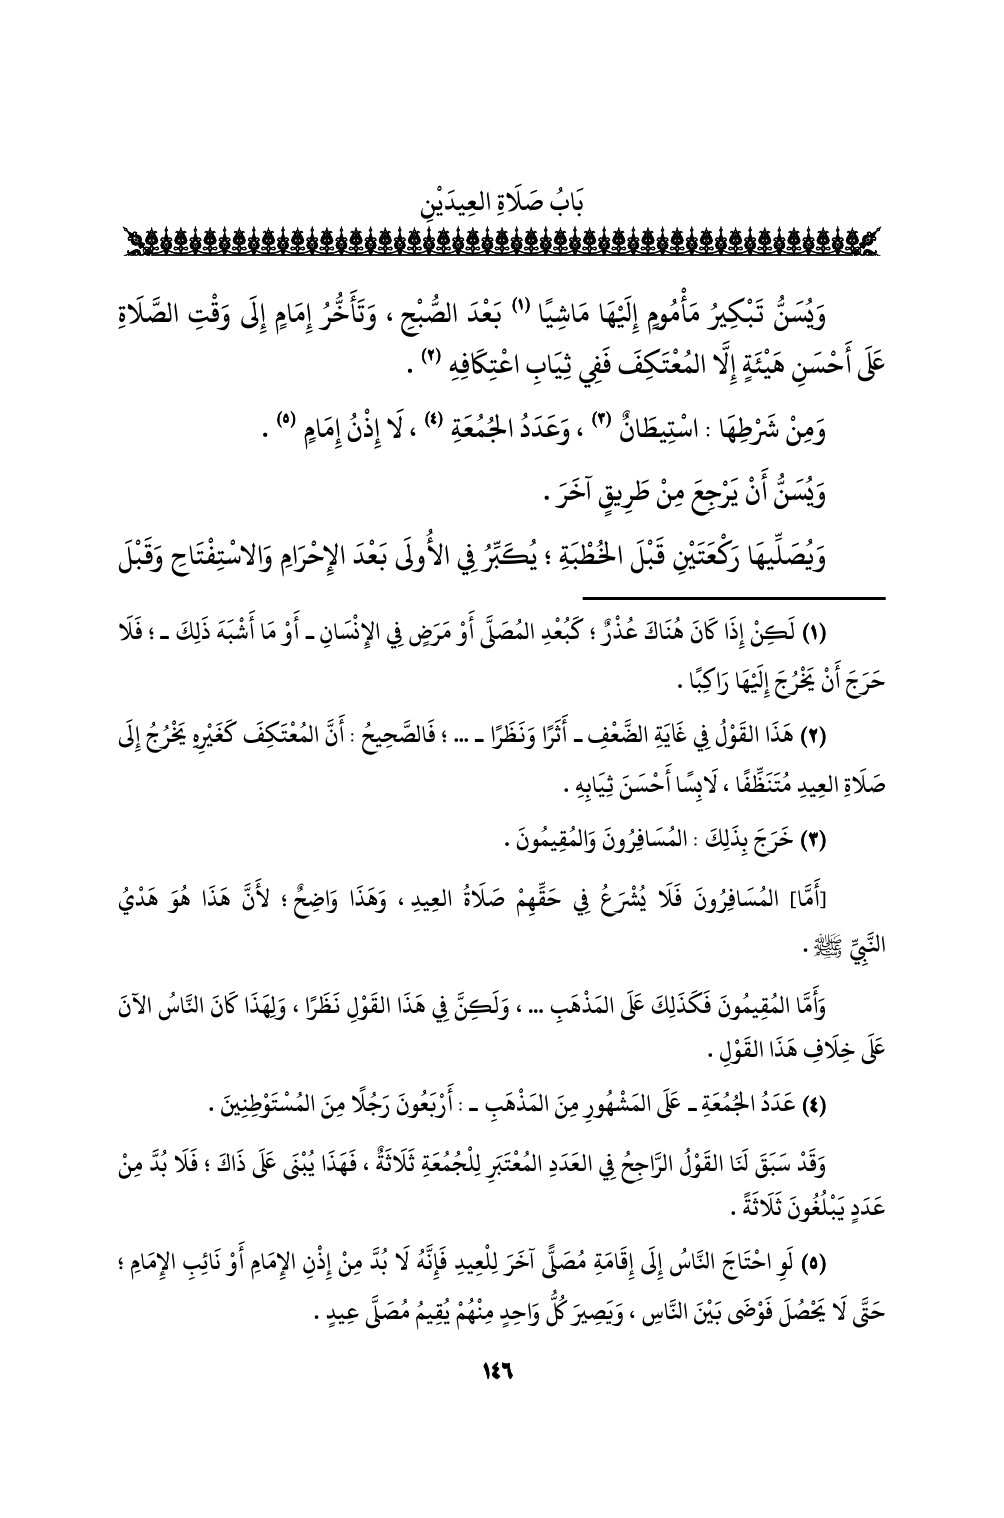 بَابُ صَلَاةِ العِيدَيْنِ
وَيُسَنُّ تَبْكِيرُ مَأْمُومٍ إِلَيْهَا مَاشِيًا (١) بَعْدَ الصُّبْحِ ، وَتَأَخُّرُ إِمَامٍ إِلَى وَقْتِ الصَّلَاةِ
عَلَى أَحْسَنِ هَيْئَةٍ إِلَّا المُعْتَكِفَ فَفِي ثِيَابِ اعْتِكَافِهِ (٢) .
وَمِنْ شَرْطِهَا : اسْتِيطَانٌ (٣) ، وَعَدَدُ الجُمُعَةِ (٤) ، لَا إِذْنُ إِمَامٍ (٥) .
وَيُسَنُّ أَنْ يَرْجِعَ مِنْ طَرِيقٍ آخَرَ .
وَيُصَلِّيهَا رَكْعَتَيْنِ قَبْلَ الخُطْبَةِ ؛ يُكَبِّرُ فِي الأُولَى بَعْدَ الإِحْرَامِ وَالاسْتِفْتَاحِ وَقَبْلَ
(١) لَكِنْ إِذَا كَانَ هُنَاكَ عُذْرٌ ؛ كَبُعْدِ المُصَلَّى أَوْ مَرَضٍ فِي الإِنْسَانِ ـ أَوْ مَا أَشْبَهَ ذَلِكَ ـ ؛ فَلَا
حَرَجَ أَنْ يَخْرُجَ إِلَيْهَا رَاكِبًا .
(٢) هَذَا القَوْلُ فِي غَايَةِ الضَّعْفِ ـ أَثَرًا وَنَظَرًا ـ ... ؛ فَالصَّحِيحُ : أَنَّ المُعْتَكِفَ كَغَيْرِهِ يَخْرُجُ إِلَى
صَلَاةِ العِيدِ مُتَنَظِّفًا ، لَابِسًا أَحْسَنَ ثِيَابِهِ .
(٣) خَرَجَ بِذَلِكَ : المُسَافِرُونَ وَالمُقِيمُونَ .
[أَمَّا] المُسَافِرُونَ فَلَا يُشْرَعُ فِي حَقِّهِمْ صَلَاةُ العِيدِ ، وَهَذَا وَاضِحٌ ؛ لأَنَّ هَذَا هُوَ هَدْيُ
النَّبِيِّ ﷺ .
وَأَمَّا المُقِيمُونَ فَكَذَلِكَ عَلَى المَذْهَبِ ... ، وَلَكِنَّ فِي هَذَا القَوْلِ نَظَرًا ، وَلِهَذَا كَانَ النَّاسُ الآنَ
عَلَى خِلَافِ هَذَا القَوْلِ .
(٤) عَدَدُ الجُمُعَةِ ـ عَلَى المَشْهُورِ مِنَ المَذْهَبِ ـ : أَرْبَعُونَ رَجُلًا مِنَ المُسْتَوْطِنِينَ .
وَقَدْ سَبَقَ لَنَا القَوْلُ الرَّاجِحُ فِي العَدَدِ المُعْتَبَرِ لِلْجُمُعَةِ ثَلَاثَةٌ ، فَهَذَا يُبْنَى عَلَى ذَاكَ ؛ فَلَا بُدَّ مِنْ
عَدَدٍ يَبْلُغُونَ ثَلَاثَةً .
(٥) لَوِ احْتَاجَ النَّاسُ إِلَى إِقَامَةِ مُصَلًّى آخَرَ لِلْعِيدِ فَإِنَّهُ لَا بُدَّ مِنْ إِذْنِ الإِمَامِ أَوْ نَائِبِ الإِمَامِ ؛
حَتَّى لَا يَحْصُلَ فَوْضَى بَيْنَ النَّاسِ ، وَيَصِيرَ كُلُّ وَاحِدٍ مِنْهُمْ يُقِيمُ مُصَلَّى عِيدٍ .
١٤٦